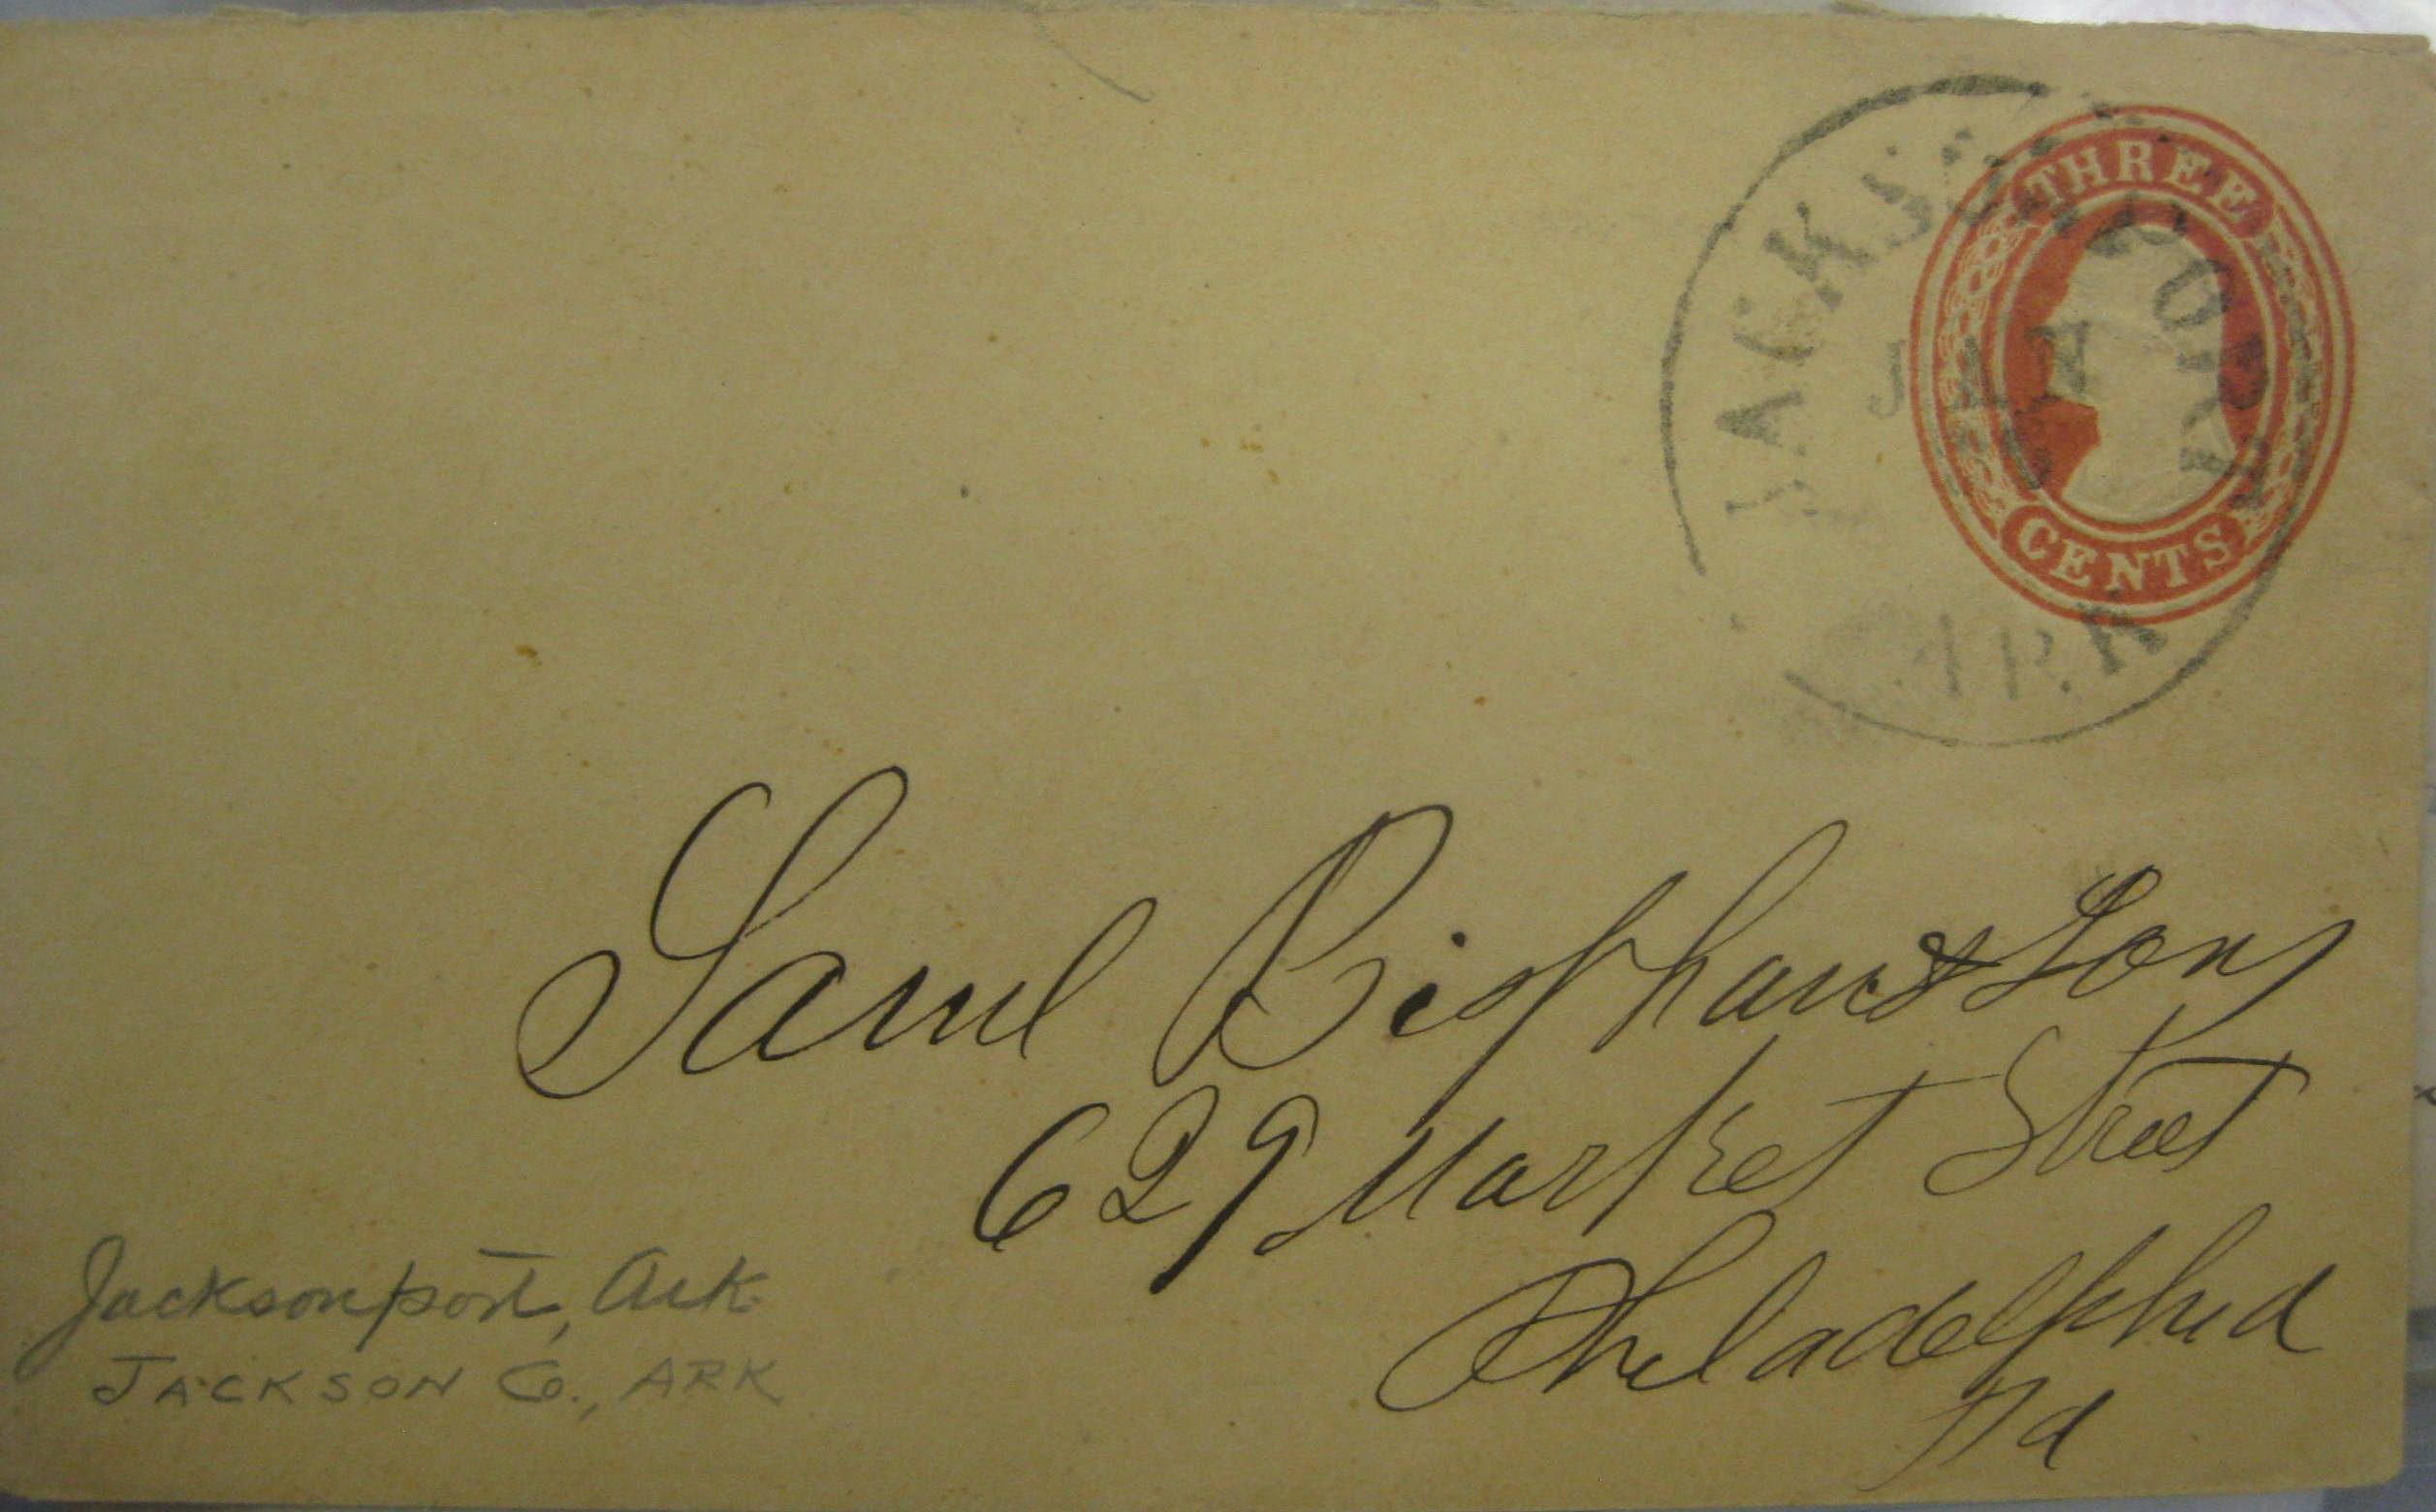 JACKSONPORT
JAN
ARK
THREE
CENTS
Saml Bispham & Sons
629 Market Street
Philadelphia
Pa
Jacksonport, Ark.
JACKSON CO., ARK